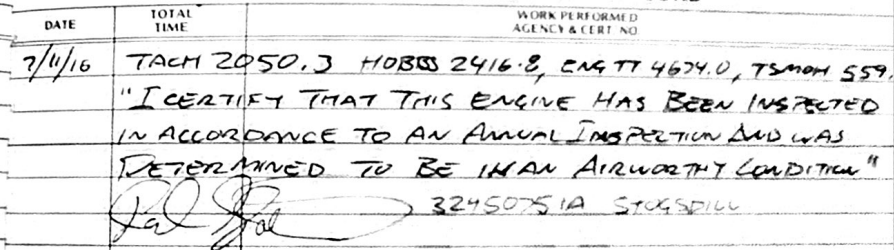 DATE TOTAL TIME WORK PERFORMED AGENCY & CERT NO.
7/11/16 TACH 2050.3 HOBBS 2416.8, ENG TT 4674.0, TSMOH 559.
"I CERTIFY THAT THIS ENGINE HAS BEEN INSPECTED
IN ACCORDANCE TO AN ANNUAL INSPECTION AND WAS
DETERMINED TO BE IN AN AIRWORTHY CONDITION"
3245075IA STOGSDILL